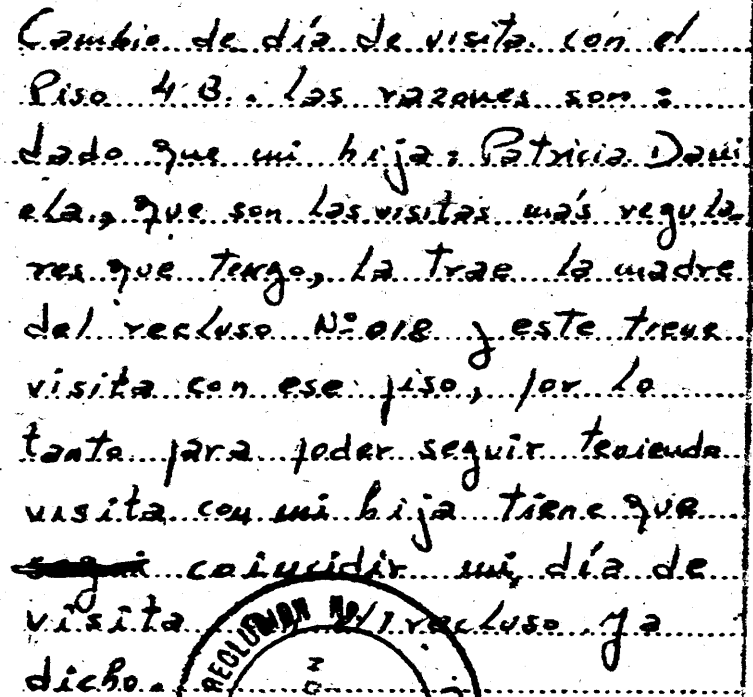 Cambio de día de visita con el
Piso 4 B. las razones son:
dado que mi hija: Patricia Dani
ela, que son las visitas más regula
res que tengo, la trae la madre
del recluso Nº 018 y este tiene
visita con ese piso, por lo
tanto para poder seguir teniendo
visita con mi hija tiene que
coincidir mi día de
visita del recluso ya
dicho.
RECLUSION